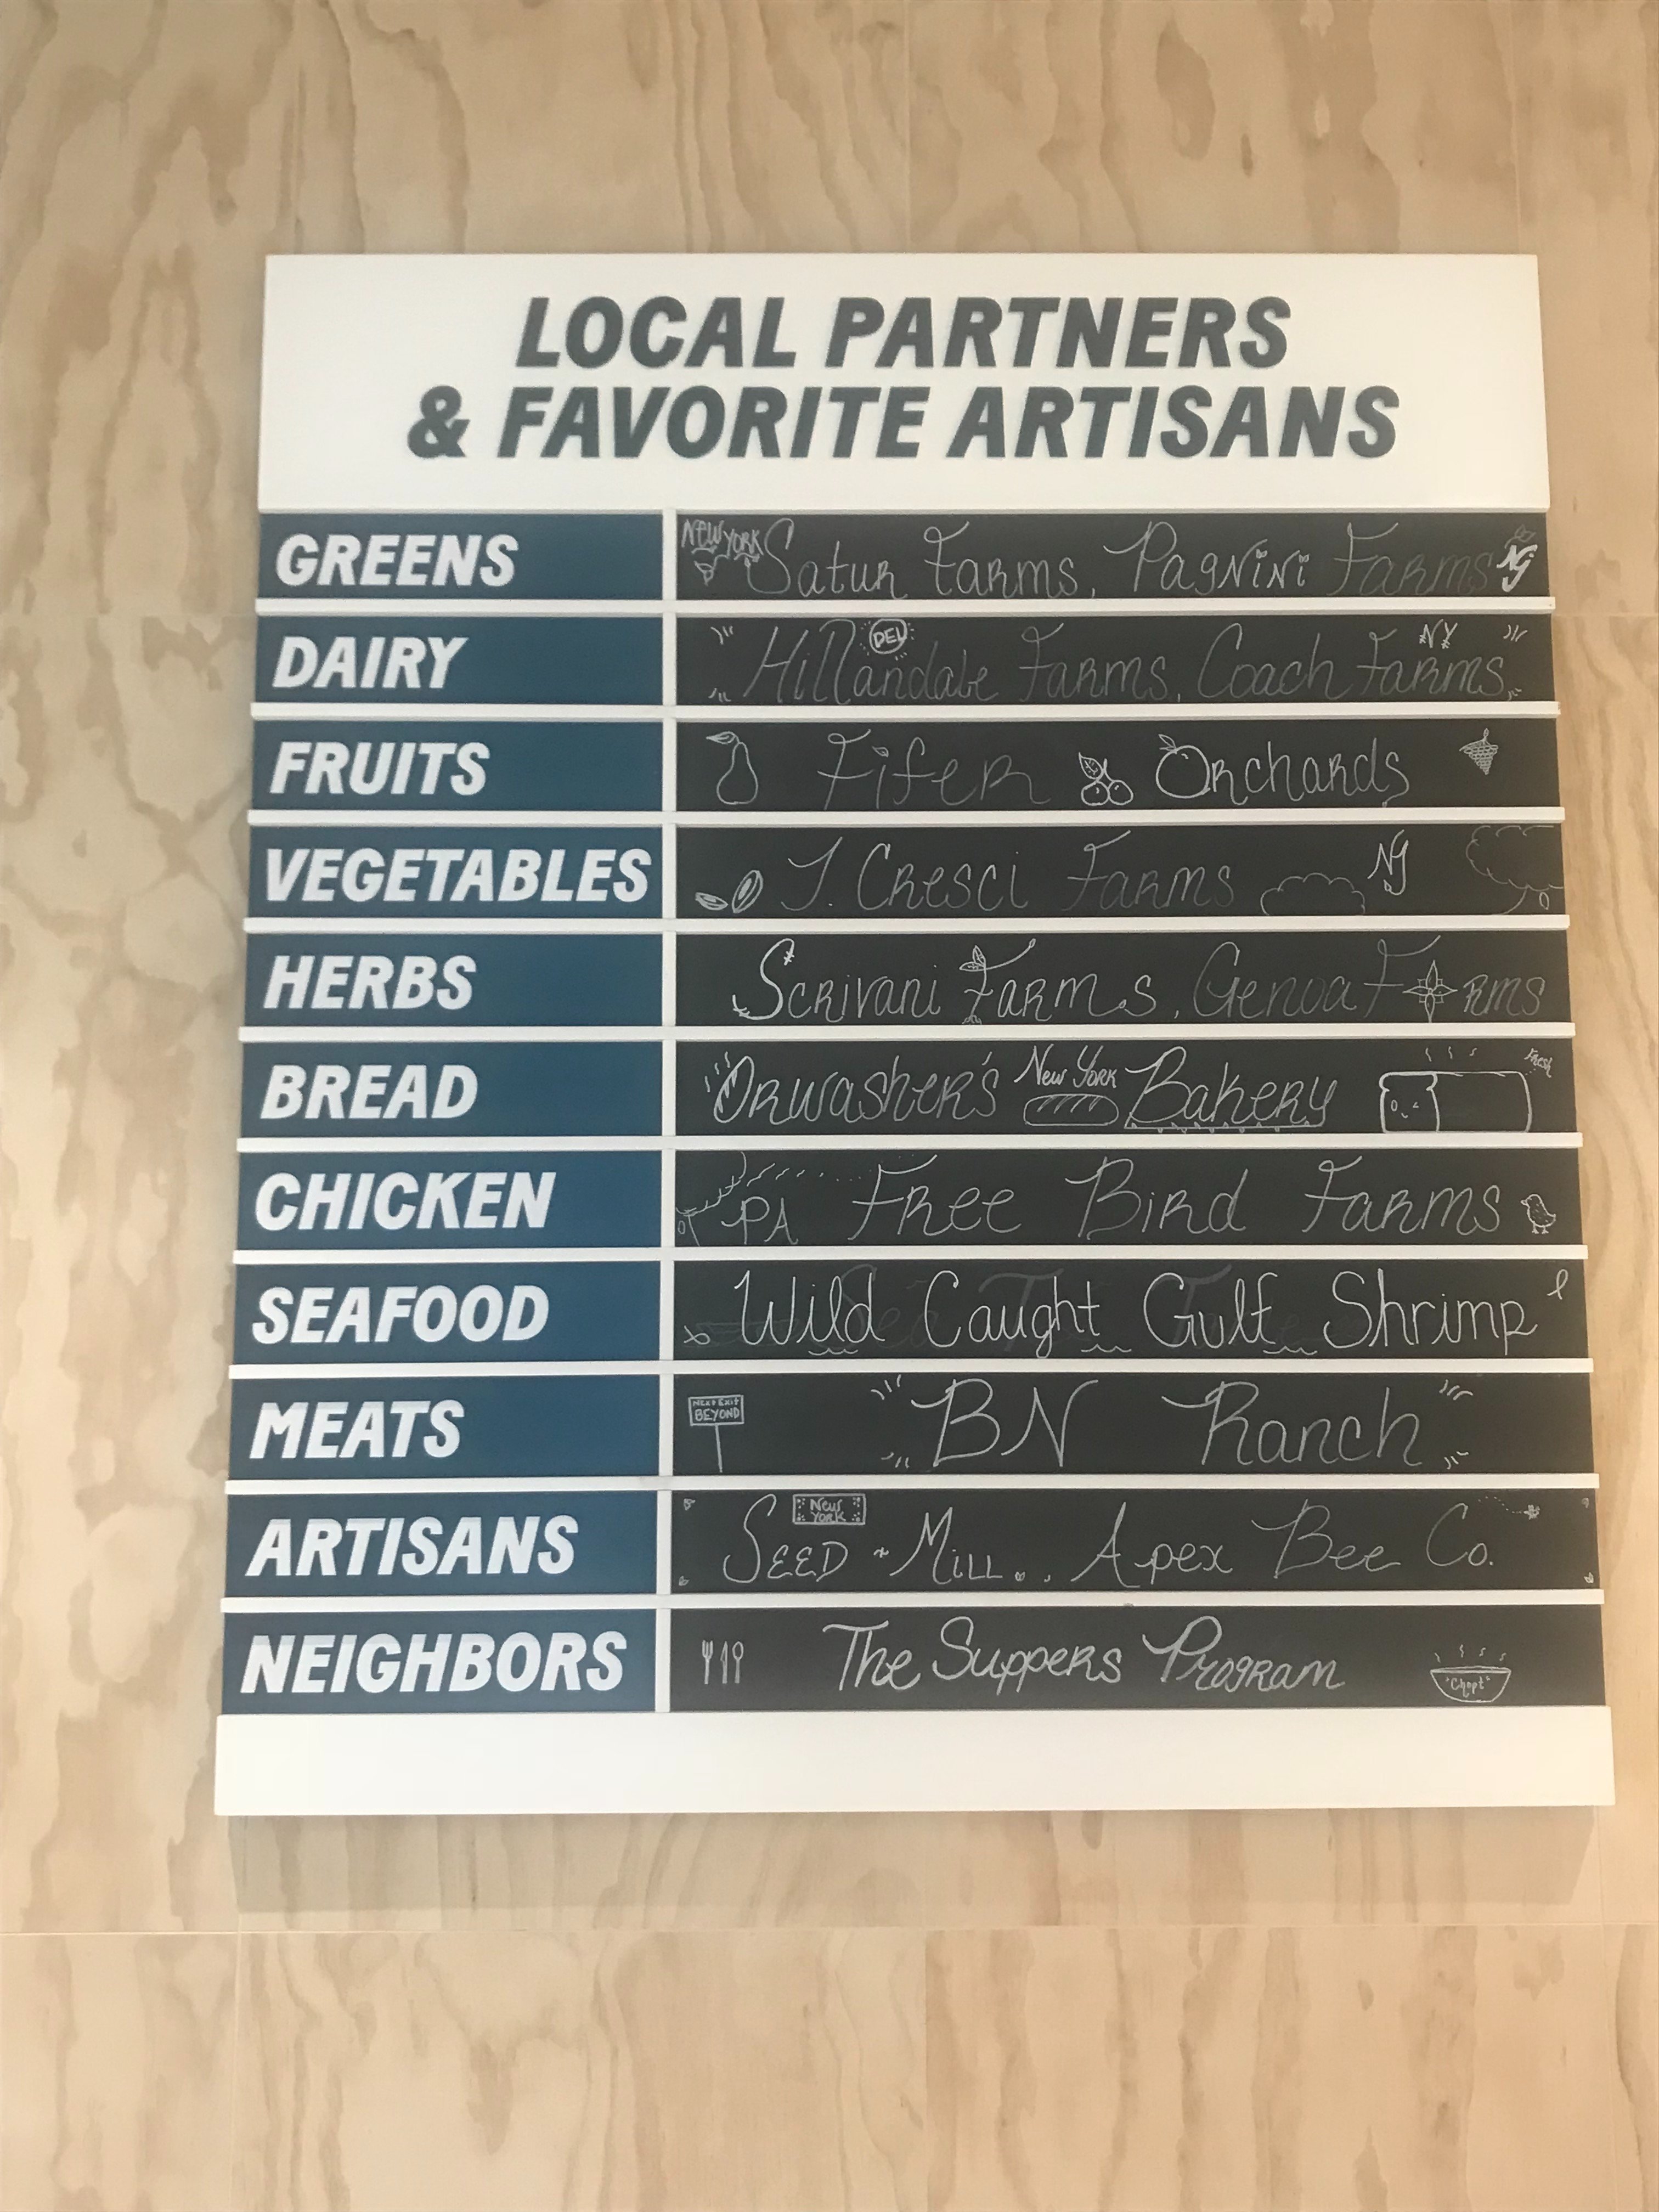 LOCAL PARTNERS
& FAVORITE ARTISANS
GREENS NEW YORK Satur Farms, Pagnini Farms NJ
DAIRY Hillandale Farms, DEL Coach Farms NY
FRUITS Fifer Orchards
VEGETABLES J. Cresci Farms NJ
HERBS Scrivani Farms, Genoa Farms
BREAD Orwasher's New York Bakery Fresh
CHICKEN PA Free Bird Farms
SEAFOOD Wild Caught Gulf Shrimp
MEATS NEXT EXIT BEYOND BN Ranch
ARTISANS SEED + MILL.. New YORK Apex Bee Co.
NEIGHBORS The Suppers Program "Chopt"